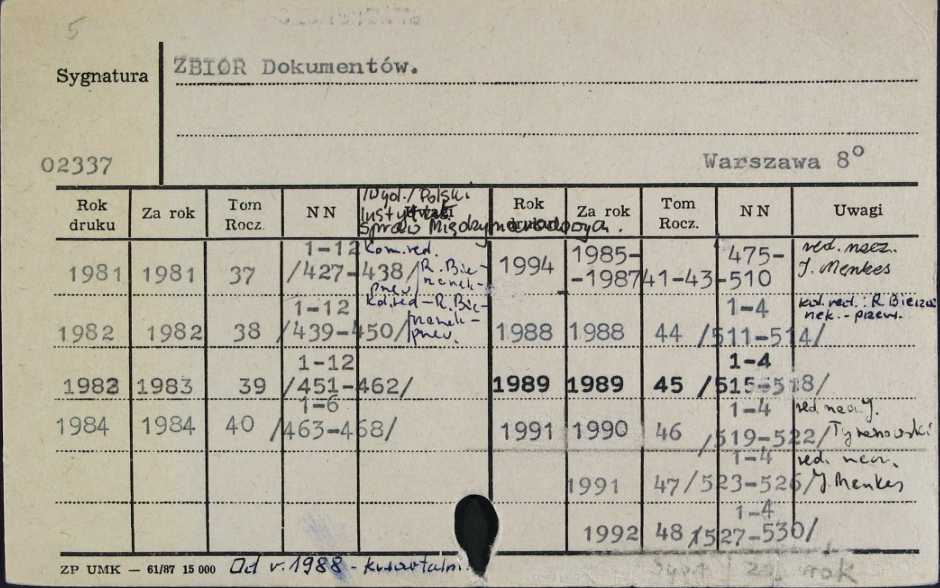 5
ZBIÓR Dokumentów.
Sygnatura
02337
Warszawa 8°
/Wyd./Polski
Instytut
Spraw Międzynarodowych.
Rok druku Za rok Tom Rocz. NN Uwagi Rok druku Za rok Tom Rocz. NN Uwagi
1981 1981 37 1-12 /427-438/ Kom.red. /R. Bierzanek-
1982 1982 38 1-12 /439-450/ Kol.red-R. Bierzanek-
1983 1983 39 1-12 /451-462/
1984 1984 40 1-6 /463-468/
1994 1985-1987 41-43 475-510 red. nacz. J. Menkes
1988 1988 44 1-4 /511-514/ kol. red.: R. Bierzanek.-przew.
1989 1989 45 1-4 /515-518/
1991 1990 46 1-4 /519-522/ red. nacz. J. Tyranowski
1991 47 1-4 /523-526/ red. nacz. J. Menkes
1992 48 1-4 /527-530/
ZP UMK — 61/87 15 000 Od r. 1988 - kwartalni